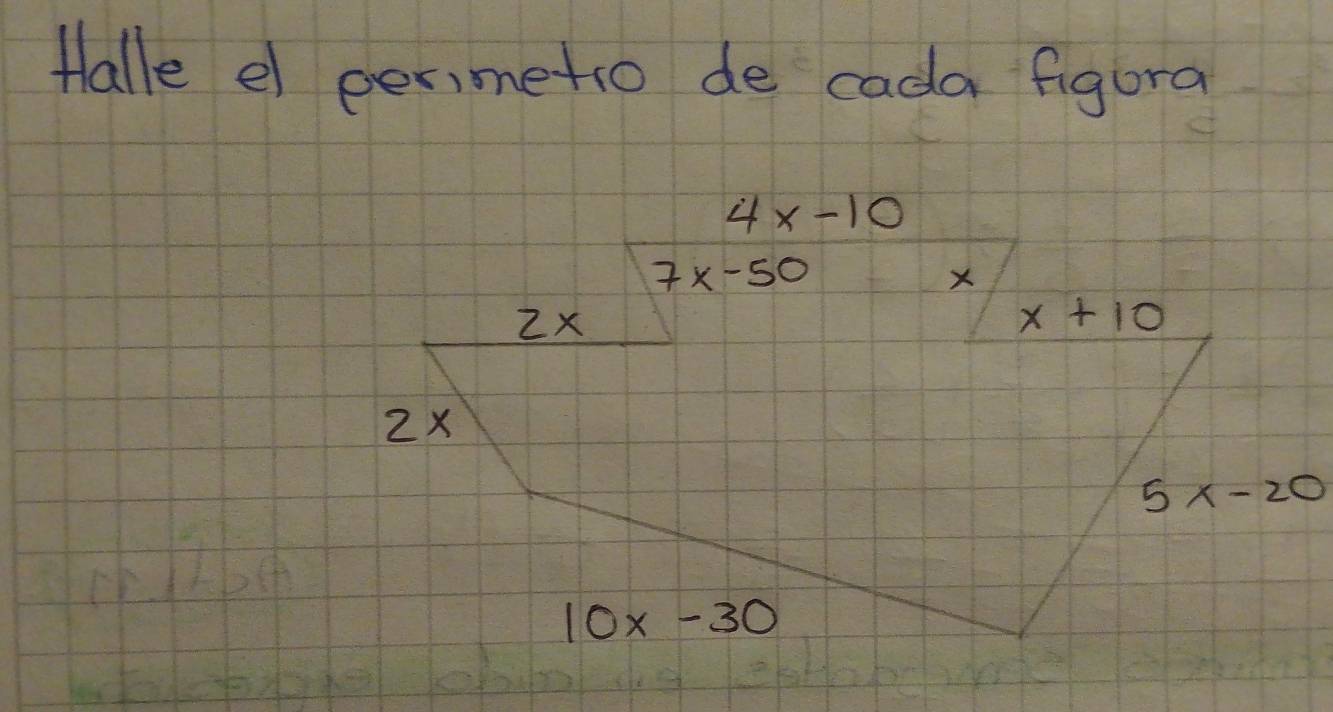 Halle el perimetro de cada figura
4x-10
7x-50
x
2x
x+10
2x
5x-20
10x-30